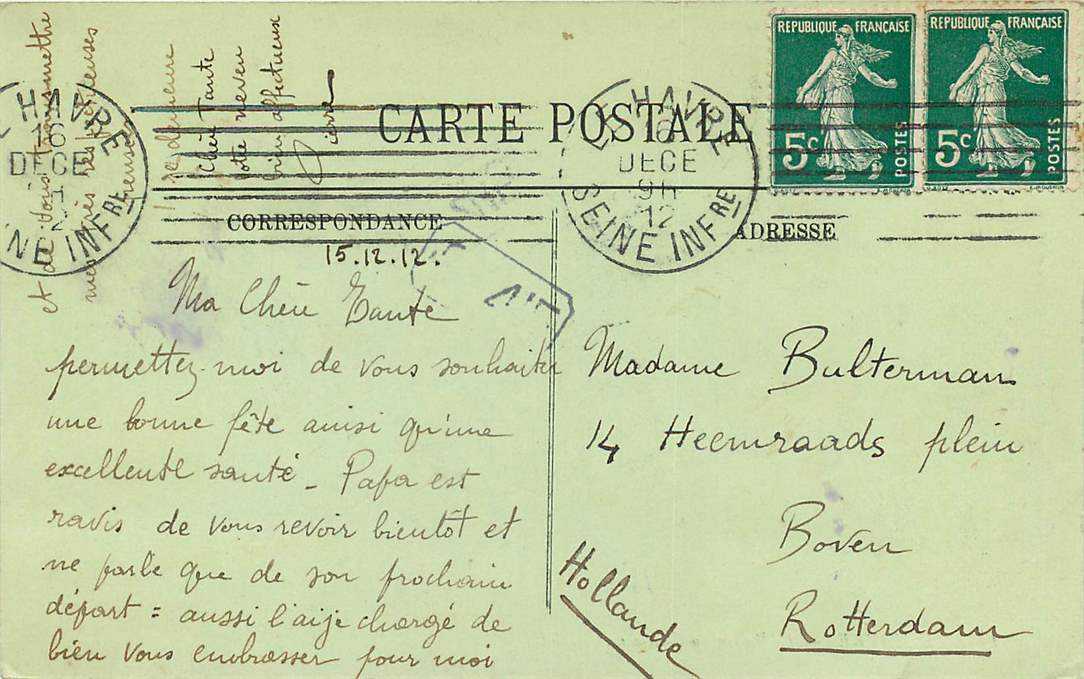 RÉPUBLIQUE FRANÇAISE
5c
POSTES
RÉPUBLIQUE FRANÇAISE
5c
POSTES
LE HAVRE
16
DECE
12
SEINE INFRE
LE HAVRE
16
DECE
9H
12
SEINE INFRE
CARTE POSTALE
CORRESPONDANCE
ADRESSE
15.12.12.
Ma Chère Tante
permettez-moi de vous souhaiter
une bonne fête ainsi qu'une
excellente santé - Papa est
ravis de vous revoir bientôt et
ne parle que de son prochain
départ = aussi l'ai je chargé de
bien vous embrasser pour moi
et de vous transmettre
mes très respectueuses
je demeure
Chère Tante
votre neveu
bien affectueux
Pierre
Madame Bulterman
14 Heemraads plein
Boven
Rotterdam
Hollande